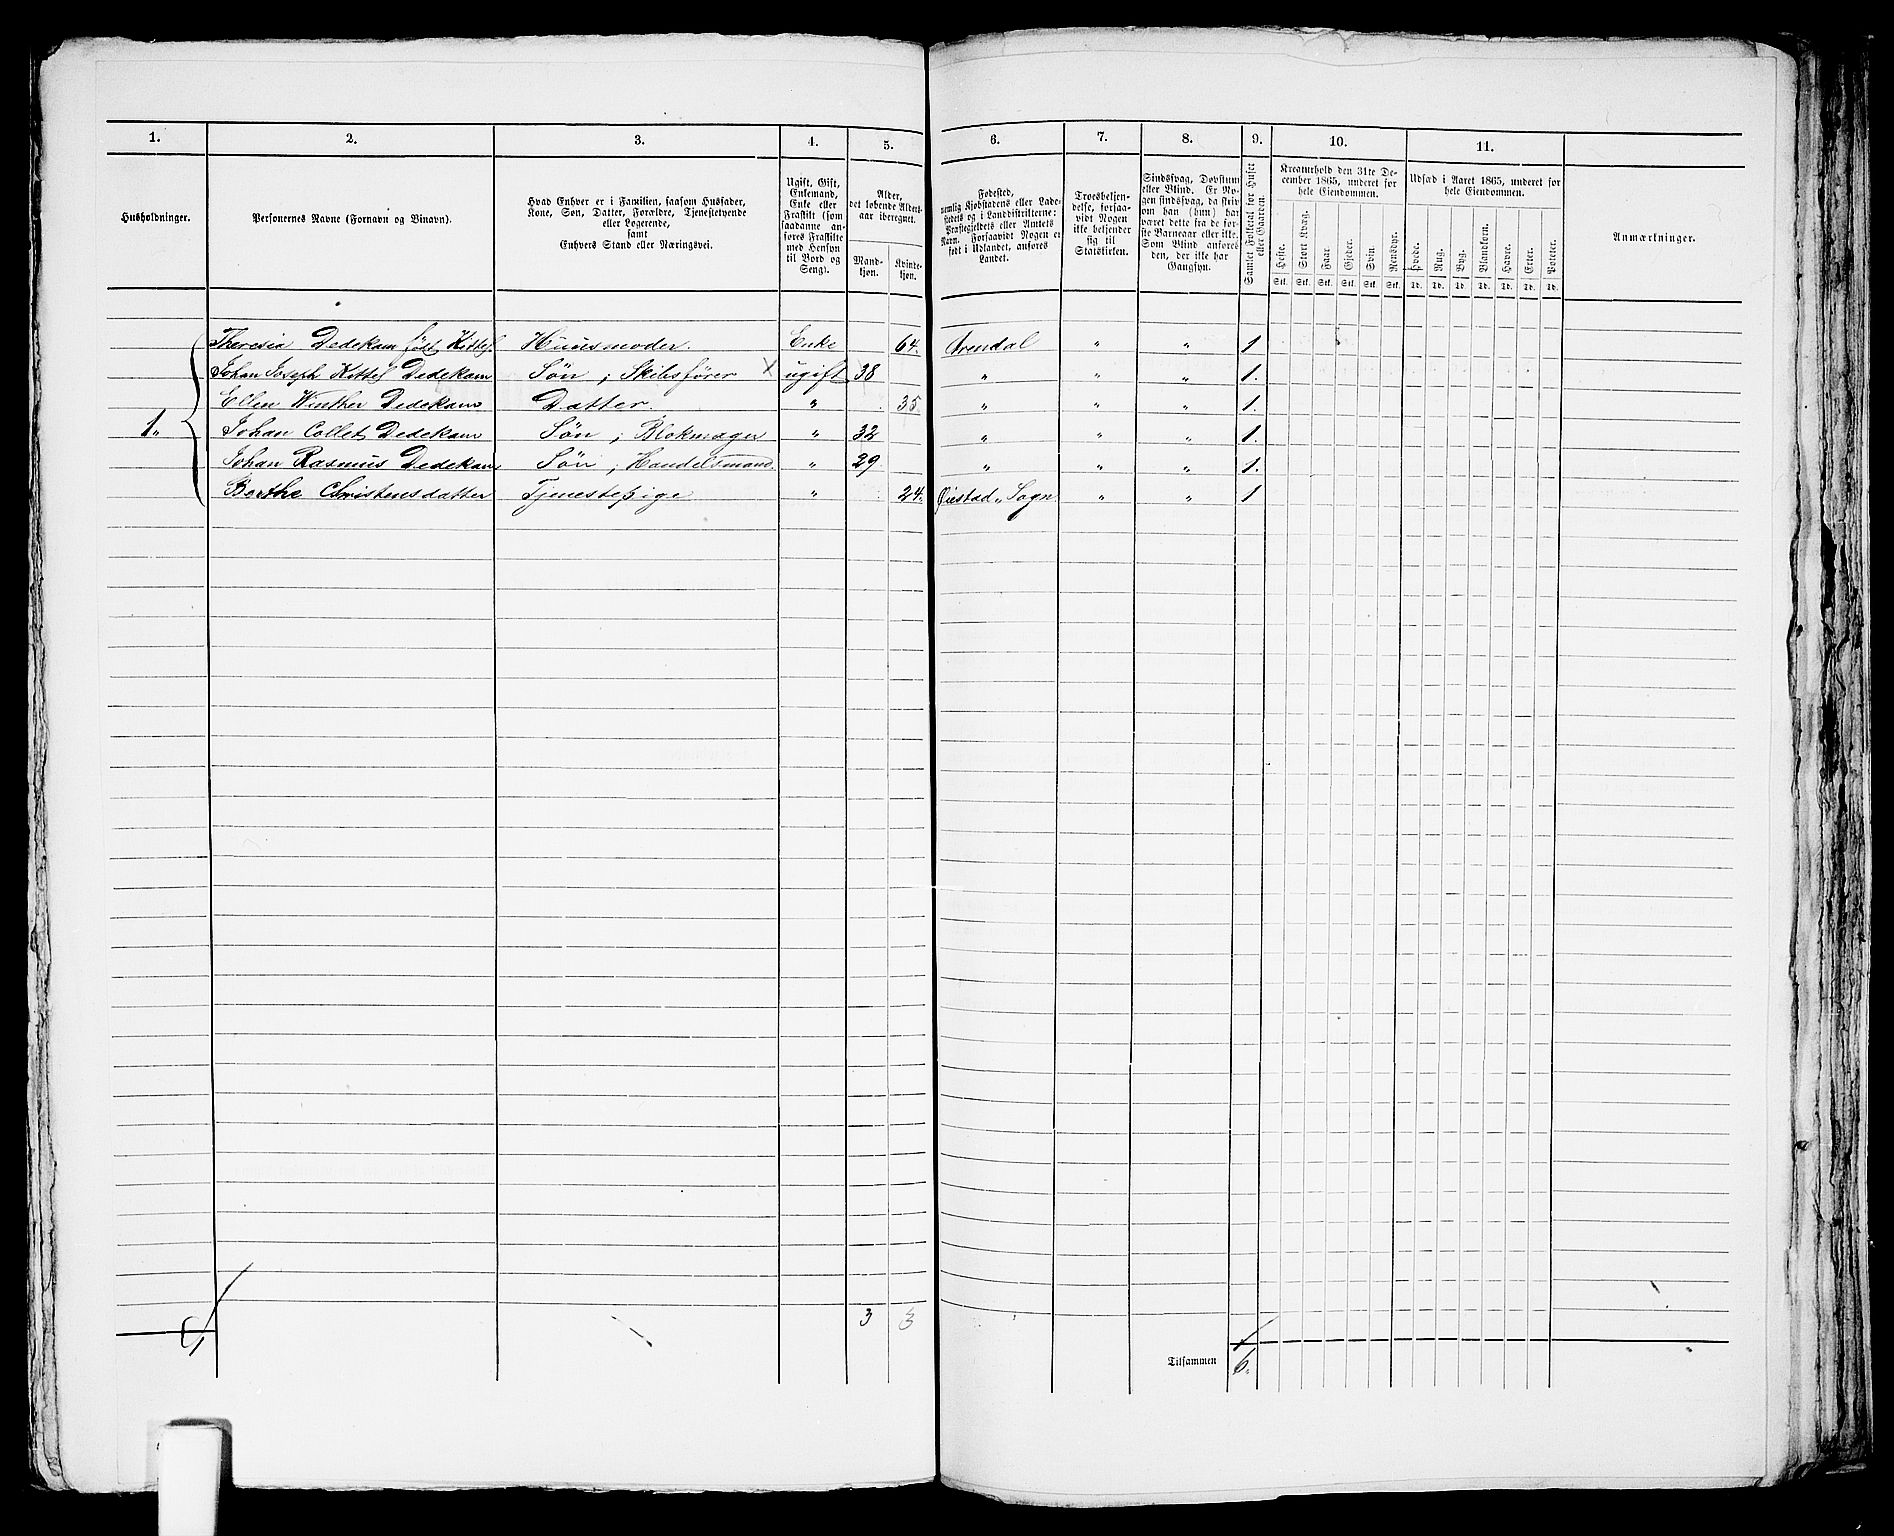 1. 2. 3. 4. 5. 6. 7. 8. 9. 10. 11.
Husholdninger.
Personernes Navne (Fornavn og Binavn).
Hvad Enhver er i Familien, saasom Husfader,
Kone, Søn, Datter, Forældre, Tjenestetyende
eller Logerende,
samt
Enhvers Stand eller Næringsvei.
Ugift, Gift,
Enkemand,
Enke eller
Fraskilt (som
saadanne an-
føres Fraskilte
med Hensyn
til Bord og
Seng).
Alder,
det løbende Alders-
aar iberegnet.
Mand-
kjøn.
Kvinde-
kjøn.
Fødested,
nemlig Kjøbstadens eller Lade-
stedets og i Landdistrikterne:
Præstegjeldets eller Amtets
Navn. Forsaavidt Nogen er
født i Udlandet, anføres
Landet.
Troesbekjen-
delse, forsaa-
vidt Nogen
ikke bekjender
sig til
Statskirken.
Sindssvag, Døvstum
eller Blind. Er No-
gen sindssvag, da skriv
om han (hun) har
været dette fra de før-
ste Barneaar eller ikke.
Som Blind anføres
den, der ikke har
Gangsyn.
Samlet Folketal for Huset
eller Gaarden.
Kreaturhold den 31te De-
cember 1865, underet for
hele Eiendommen.
Heste. Stort Kvæg. Faar. Gjeder. Svin. Rensdyr.
Stk. Stk. Stk. Stk. Stk. Stk.
Udsæd i Aaret 1865, underet for
hele Eiendommen.
Hvede. Rug. Byg. Blandkorn. Havre. Erter. Poteter.
Td. Td. Td. Td. Td. Td. Td.
Anmærkninger.
Theresia Dedekam født Kittel Huusmoder. Enke 64. Arendal " " 1
Johan Joseph Kittel Dedekam Søn; Skibsfører X ugift 38 " " " 1.
Ellen Winther Dedekam Datter. " 35 " " " 1.
1. Johan Collet Dedekam Søn; Blokmager " 32 " " " 1.
Johan Rasmus Dedekam Søn; Handelsmand " 29 " " " 1.
Berthe Christensdatter Tjenestepige " 24. Øiestad Sogn. " " 1
3 3
Tilsammen 6.